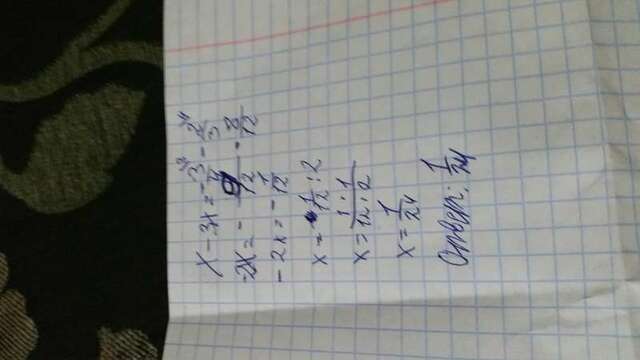 x - 3x = -3/4 - 2/3
-2x = - 9/12 - 8/12
-2x = - 1/12
x = 1/12 : 2
x = 1·1/12·2
x = 1/24
Ответ: 1/24